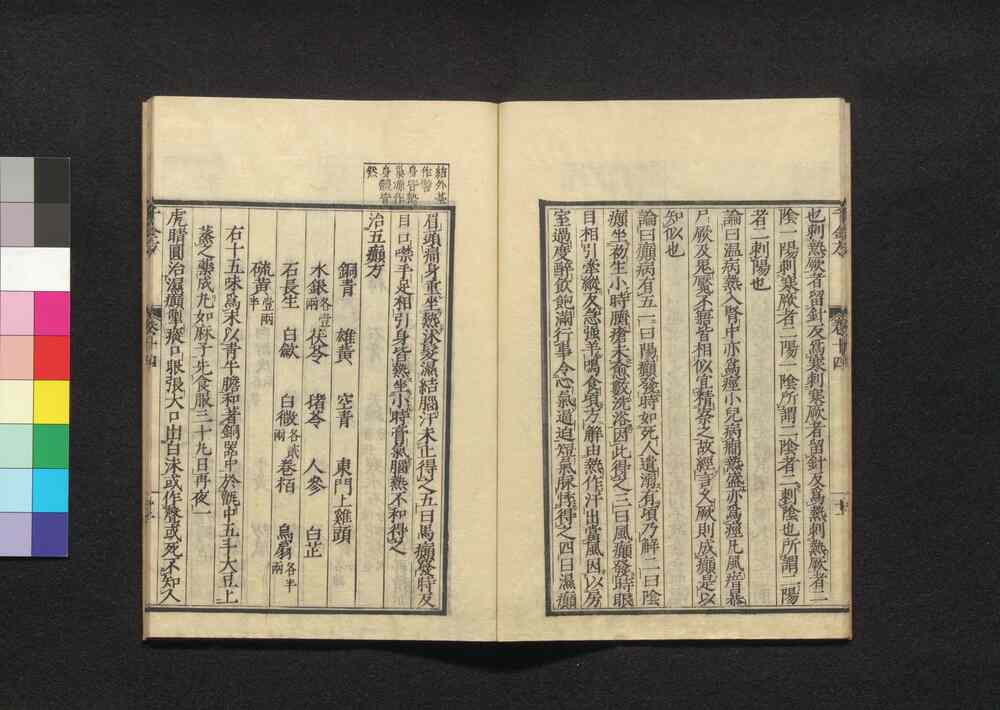 也刺熱厥者留針反爲寒刺寒厥者留針反爲熱刺熱厥者二
陰一陽刺寒厥者二陽一陰所謂二陰者二刺陰也所謂二陽
者二刺陽也
論曰温病熱入腎中亦爲痙小兒病癇熱盛亦爲痙凡風瘖暴
尸厥及鬼魘不寤皆相似宜精察之故經言久厥則成癲是以
知似也
論曰癲病有五一曰陽癲發時如死人遺溺有頃乃解二曰陰
癲坐初生小時臍瘡未愈數洗浴因此得之三曰風癲發時眼
目相引牽縱反急強羊鳴食頃方解由熱作汗出當風因以房
室過度醉飲飽滿行事令心氣逼迫短氣脉悸得之四曰濕癲
眉頭痛身重坐熱沐髮濕結腦汗未止得之五曰馬癲發時反
目口噤手足相引身皆熱坐小時膏氣腦熱不和得之
治五癲方
銅青 雄黃 空青 東門上雞頭
水銀各壹兩 茯苓 猪苓 人參 白芷
石長生 白歛 白薇各貳兩 卷栢 烏扇各半兩
硫黃壹兩半
右十五味爲末以青牛膽和著銅器中於甑中五斗大豆上
蒸之藥成丸如麻子先食服三十丸日再夜一
虎睛圓治濕癲製瘲口眼張大口出白沫或作聲或死不知人
千金方
卷十四